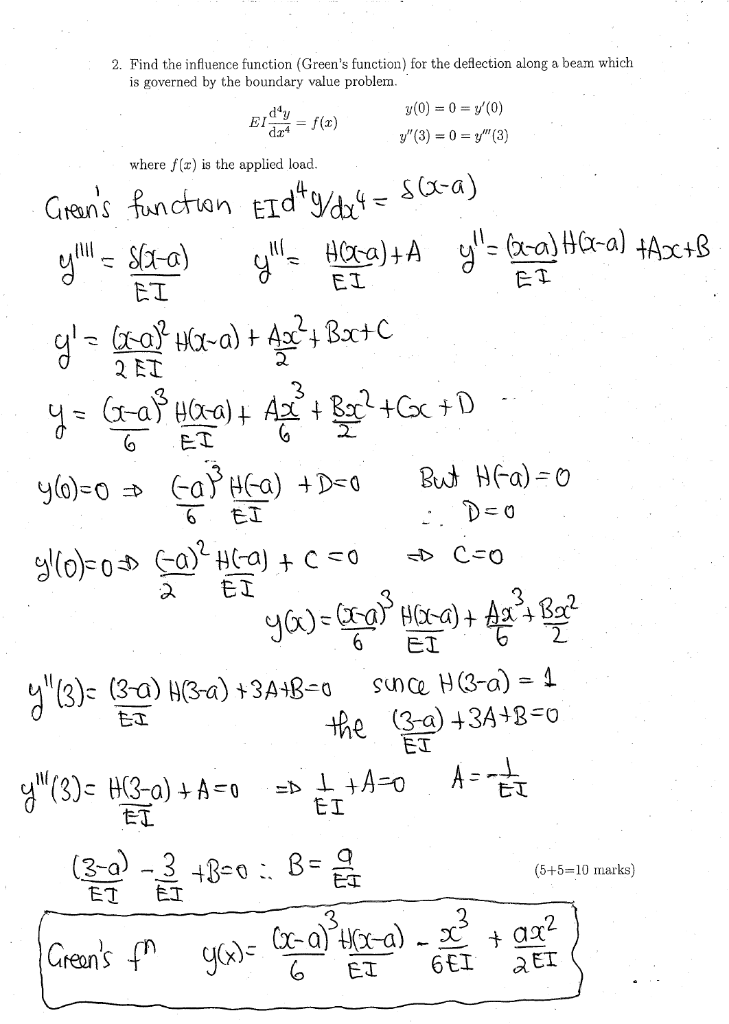 2. Find the influence function (Green's function) for the deflection along a beam which
is governed by the boundary value problem.
EI d⁴y/dx⁴ = f(x)    y(0) = 0 = y′(0)
y″(3) = 0 = y‴(3)
where f(x) is the applied load.
Green's function EId⁴y/dx⁴ = δ(x-a)
y'''' = δ(x-a)/EI    y''' = H(x-a)/EI + A    y'' = (x-a)H(x-a)/EI + Ax+B
y' = (x-a)²/2EI H(x-a) + Ax²/2 + Bx+C
y = (x-a)³/6 H(x-a)/EI + Ax³/6 + Bx²/2 + Cx + D
y(0)=0 ⇒ (-a)³/6 H(-a)/EI + D=0    But H(-a)=0
∴ D=0
y'(0)=0 ⇒ (-a)²/2 H(-a)/EI + C=0 ⇒ C=0
y(x) = (x-a)³/6 H(x-a)/EI + Ax³/6 + Bx²/2
y''(3)= (3-a)/EI H(3-a) +3A+B=0    since H(3-a) = 1
the (3-a)/EI +3A+B=0
y'''(3)= H(3-a)/EI + A=0 ⇒ 1/EI +A=0    A=-1/EI
(3-a)/EI - 3/EI +B=0 ∴ B= a/EI
(5+5=10 marks)
Green's fⁿ y(x)= (x-a)³/6 H(x-a)/EI - x³/6EI + ax²/2EI